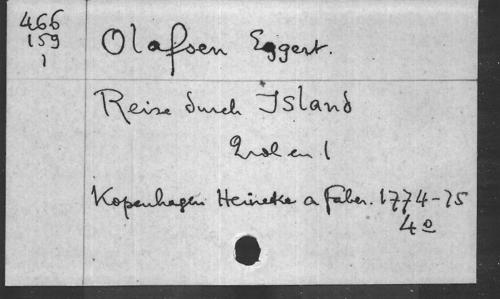 466
159
1
Olafsen Eggert.
Reise durch Island
2 vol en 1
Kopenhagen Heineke a Faber. 1774-75
4o